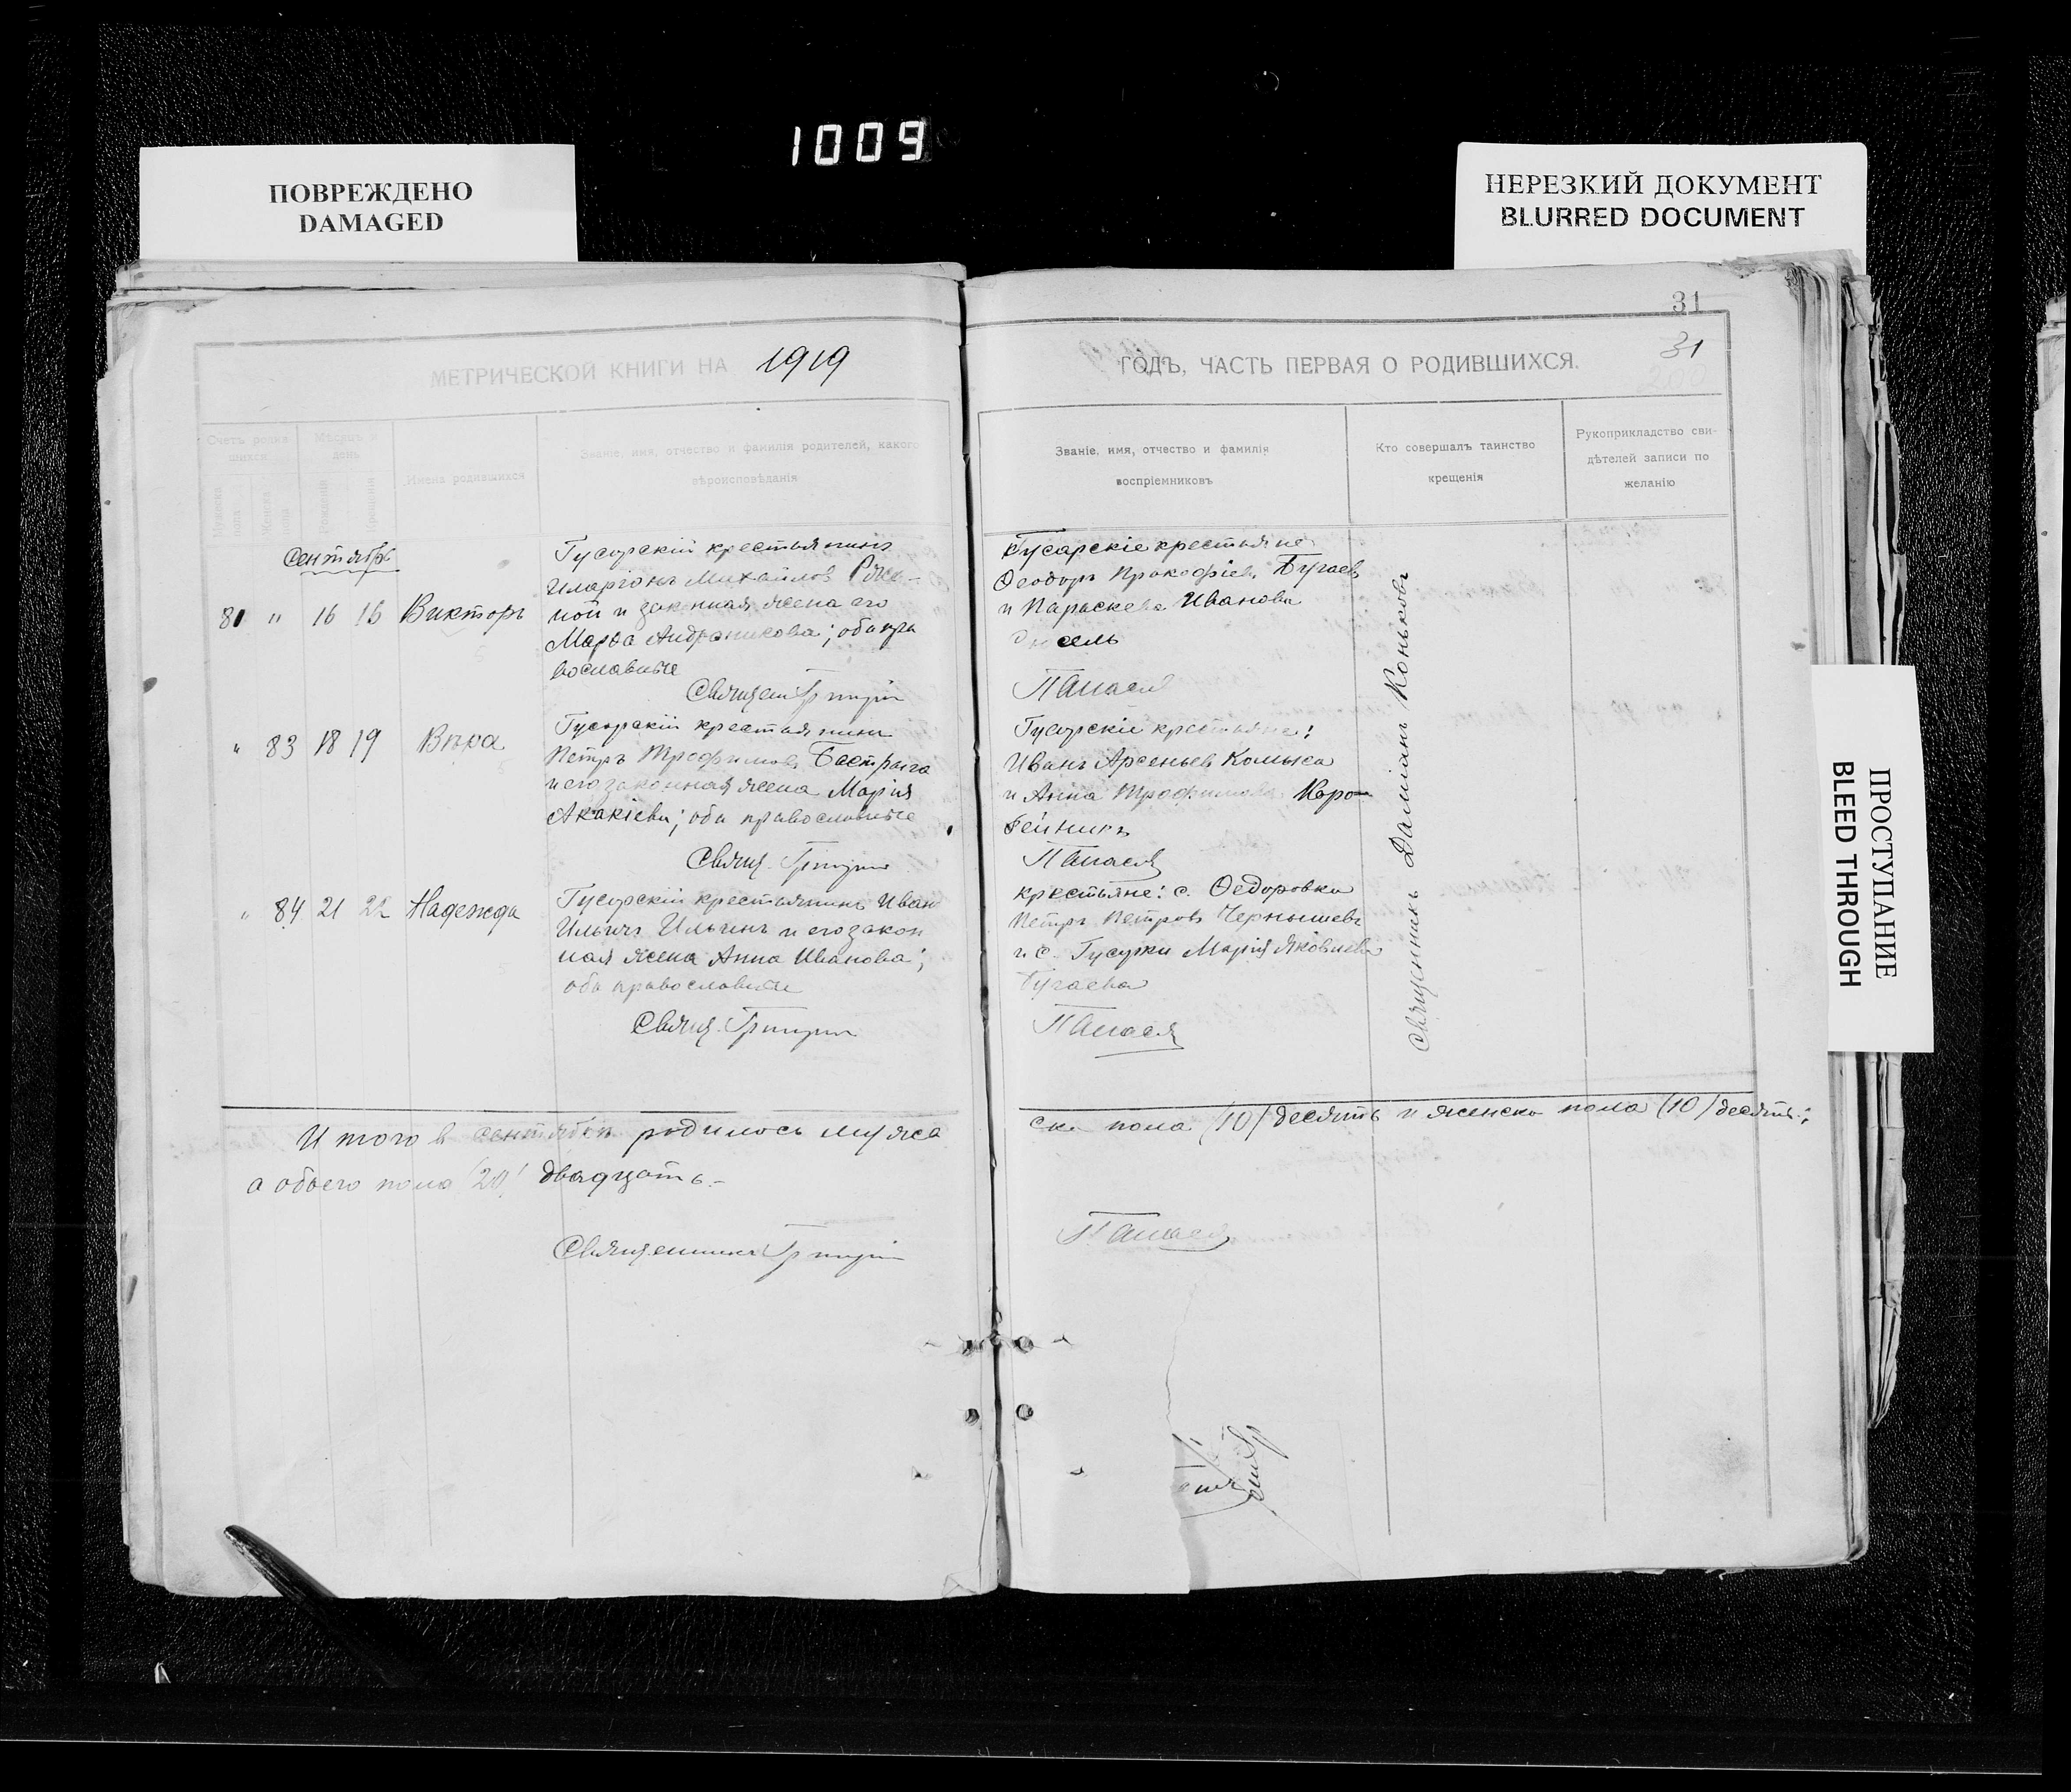 1009
ПОВРЕЖДЕНО
DAMAGED
НЕРЕЗКИЙ ДОКУМЕНТ
BLURRED DOCUMENT
ПРОСТУПАНИЕ
BLEED THROUGH
31
31
МЕТРИЧЕСКОЙ КНИГИ НА 1919
ГОДЪ, ЧАСТЬ ПЕРВАЯ О РОДИВШИХСЯ.
Счетъ родившихся
Мѣсяцъ и день
Имена родившихся
Званіе, имя, отчество и фамилія родителей, какого
вѣроисповѣданія
Званіе, имя, отчество и фамилія
воспріемниковъ
Кто совершалъ таинство
крещенія
Рукоприкладство сви-
дѣтелей записи по
желанію
Сентябрь
81 " 16 16 Викторъ
крестьянинъ
Иларіонъ Михайловъ
и законная жена его
Марѳа Андроникова; оба пра
вославные
Священ. Григорій
крестьяне
Ѳеодоръ Прокофіевъ Бугаевъ
и Параскева Иванова
" 83 18 19 Вѣра
крестьянинъ
Петръ Трофимовъ Бастрыга
и его законная жена Марія
Акакіева; оба православные
Свящ. Григорій
крестьяне:
Иванъ Арсеньевъ
и Анна Трофимова Коро-
бейникъ
" 84 21 22 Надежда
крестьянинъ Иван
Ильичъ Ильинъ и его закон
ная жена Анна Иванова;
оба православные
Свящ. Григорій
крестьяне: с. Ѳедоровки
Петръ Петровъ Чернышевъ
и с. Марія Яковлева
Бугаева
Священникъ Даміанъ Коньковъ
Итого в сентябрѣ родилось мужа
ска пола (10) десять и женска пола (10) десять;
а обоего пола (20) двадцать.-
Священникъ Григорій